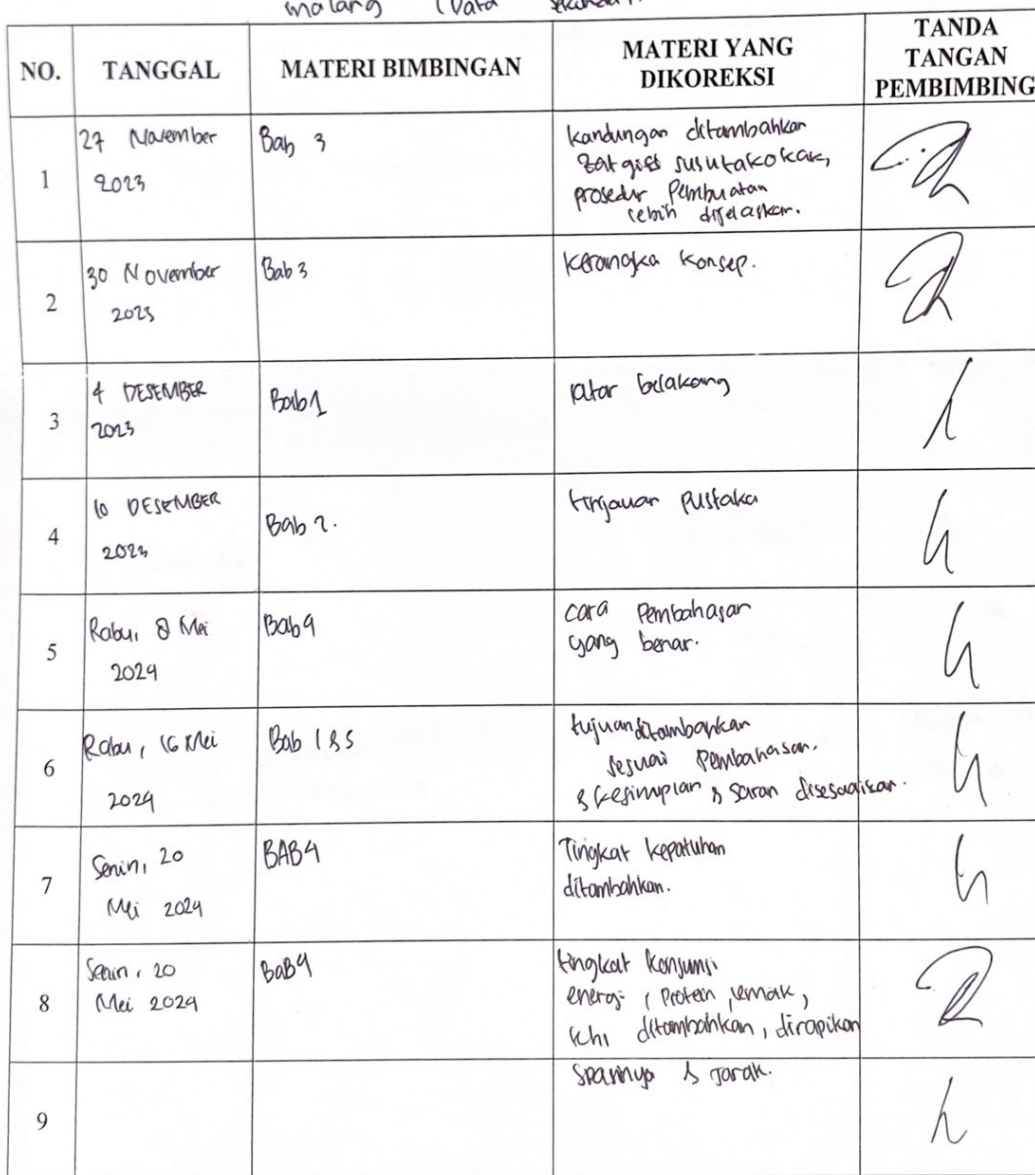 malang (Data
NO. TANGGAL MATERI BIMBINGAN MATERI YANG DIKOREKSI TANDA TANGAN PEMBIMBING
1
27 November
2023
Bab 3
kandungan ditambahkan
zat gizi susu
prosedur Pembuatan
lebih dijelaskan.
2
30 November
2023
Bab 3
kerangka konsep.
3
4 DESEMBER
2023
Bab 1
latar belakang
4
10 DESEMBER
2023
Bab 2.
tinjauan Pustaka
5
Rabu, 8 Mei
2024
Bab 4
cara Pembahasan
yang benar.
6
Rabu, 16 Mei
2024
Bab 1 & 5
tujuan ditambahkan
sesuai Pembahasan.
& kesimpulan & saran disesuaikan.
7
Senin, 20
Mei 2024
BAB 4
Tingkat kepatuhan
ditambahkan.
8
Senin, 20
Mei 2024
BaB 4
tingkat konsumsi
energi, Protein, lemak,
kh, ditambahkan, dirapikan
9
spasinya & Jarak.